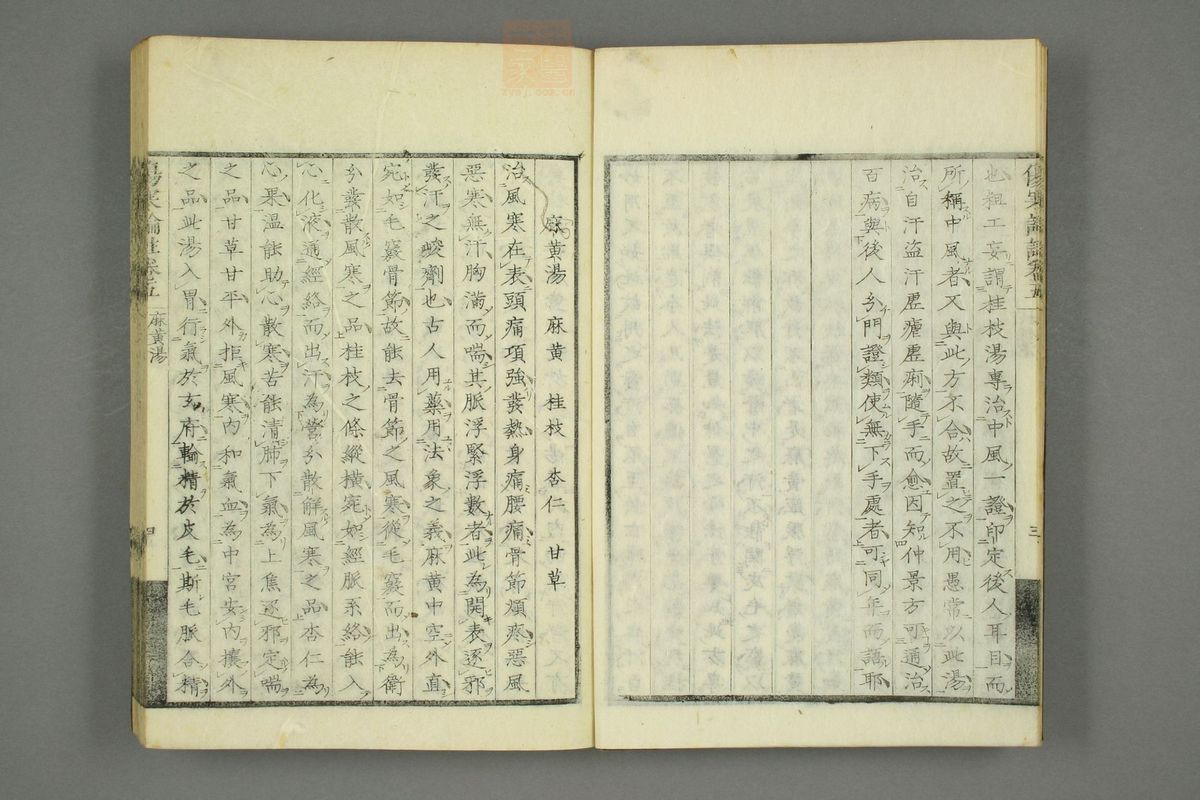 也粗工妄謂桂枝湯專治中風一證印定後人耳目而
所稱中風者又與此方不合故置之不用愚常以此湯
治自汗盗汗虚瘧虚痢隨手而愈因知仲景方可通治
百病與後人分門證類使無下手處者可同年而語耶
三
麻黄湯 麻黄 桂枝 杏仁 甘草
治風寒在表頭痛項強發熱身痛腰痛骨節煩疼惡風
惡寒無汗胸滿而喘其脈浮緊浮數者此為開表逐邪
發汗之峻劑也古人用藥用法象之義麻黄中空外直
宛如毛竅骨節故能去骨節之風寒從毛竅而出為衛
分發散風寒之品桂枝之條縱横宛如經脈系絡能入
心化液通經絡而出汗為營分散解風寒之品杏仁為
心果温能助心散寒苦能清肺下氣為上焦逐邪定喘
之品甘草甘平外拒風寒内和氣血為中宮安内攘外
之品此湯入胃行氣於玄府輸精於皮毛斯毛脈合精
傷寒論註卷五 麻黄湯 四